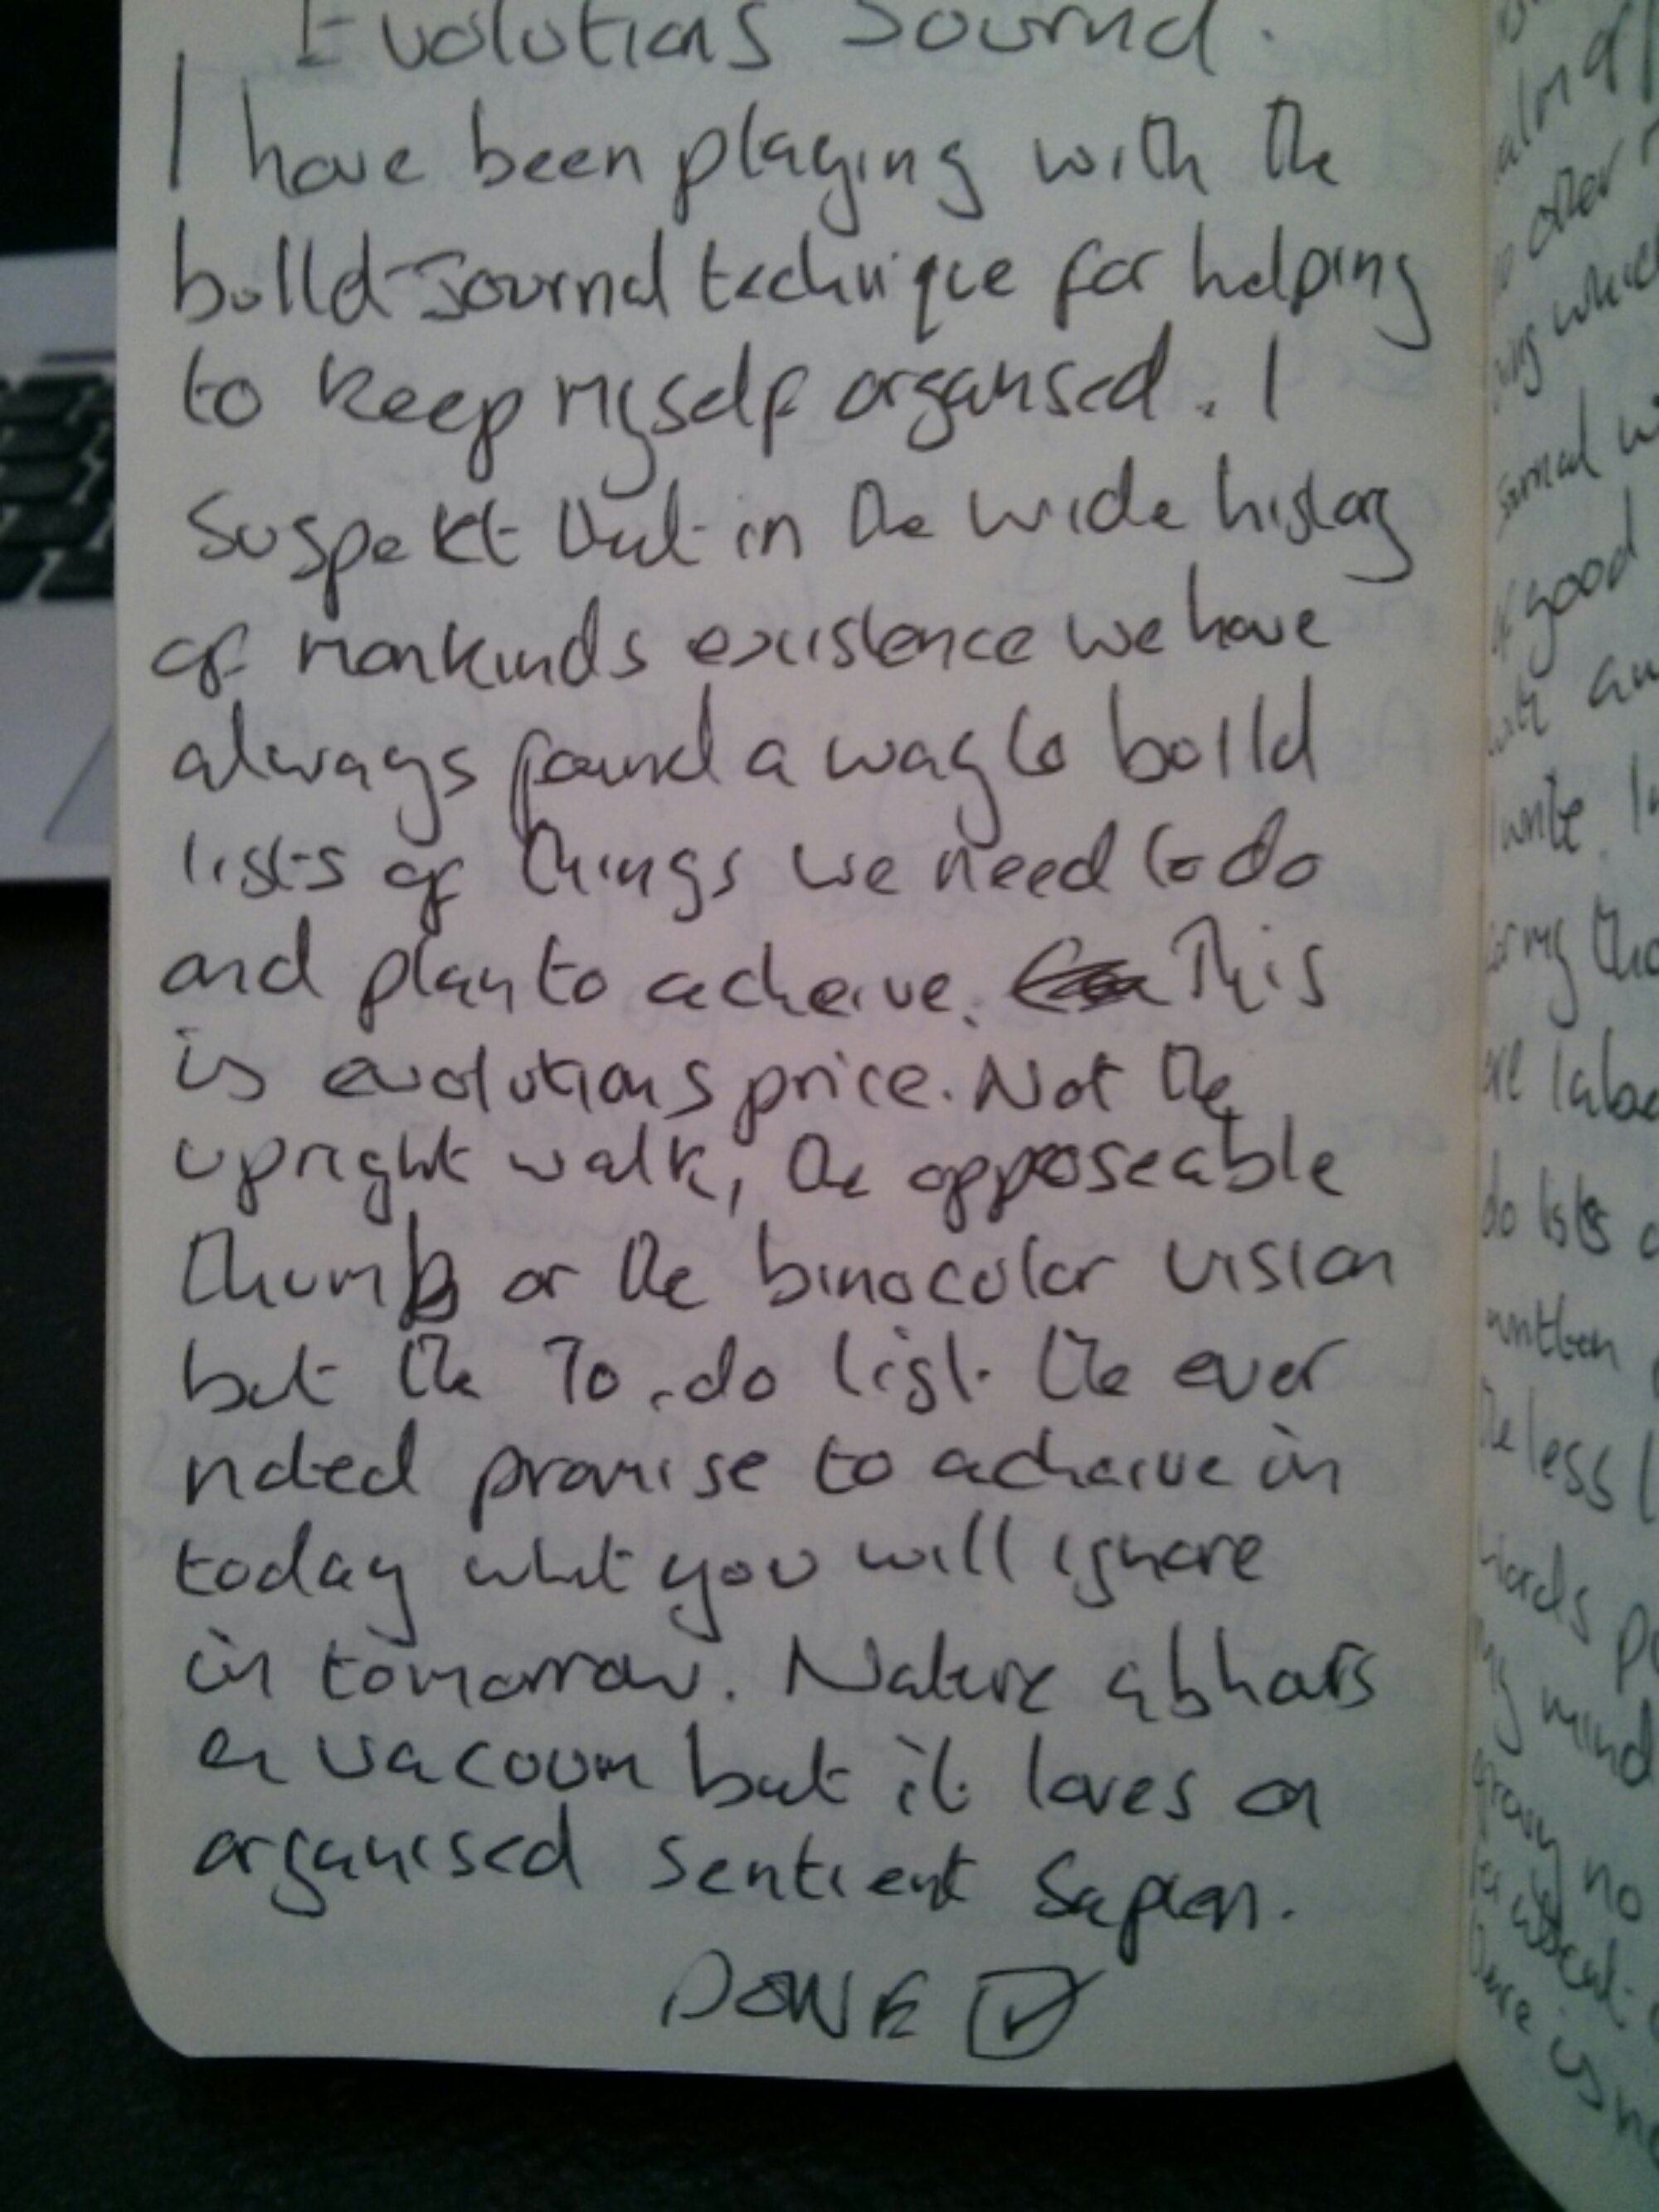 Evolutions Journal.
I have been playing with the
bullet Journal technique for helping
to keep myself organised. I
suspekt that in the wide history
of mankinds existence we have
always found a way to build
lists of things we need to do
and plan to acheive. This
is evolutions price. Not the
upright walk, the opposeable
thumb or the binocular vision
but the To-do list. the ever
promise to acheive in
today what you will ignore
in tomorrow. Nature abhors
a vacuum but it loves an
organised sentient sapien.
DONE ☑
other
which
good
write. In
do lists
written
the less
words
my mind
no